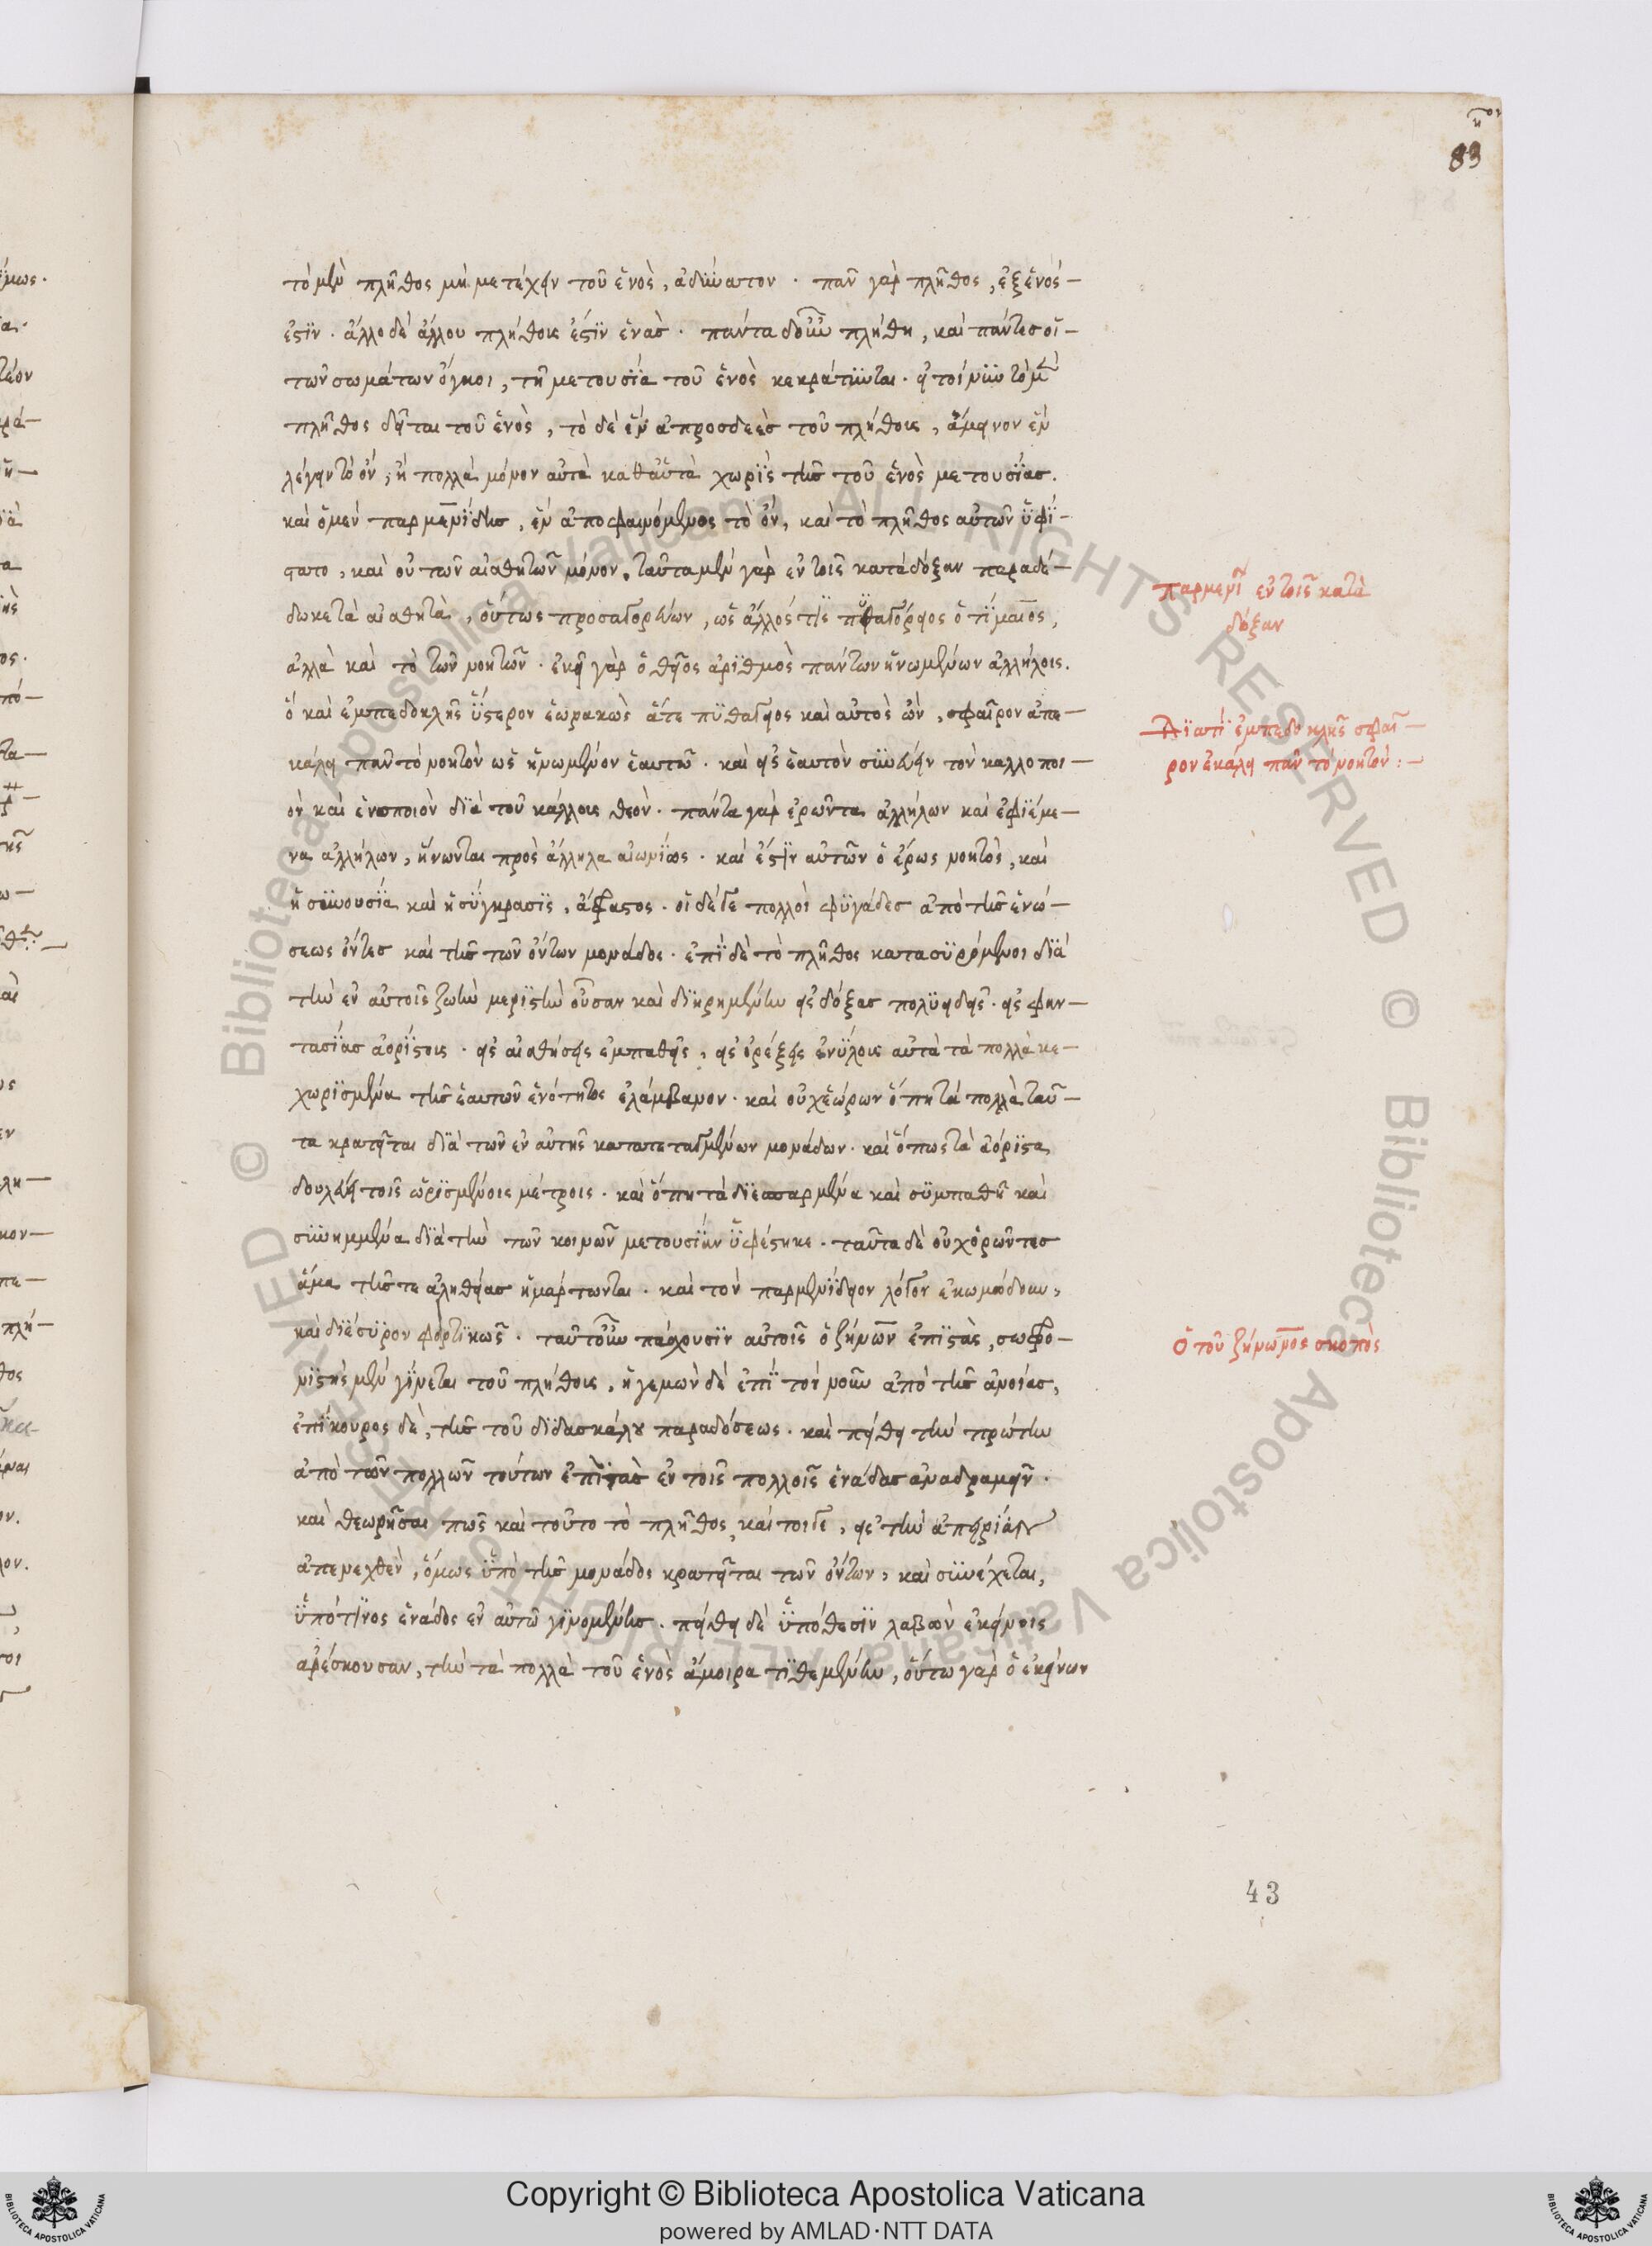 83
τὸ μὲν πλῆθος μὴ μετέχειν τοῦ ἑνὸς, ἀδύνατον . πᾶν γὰρ πλῆθος, ἐξ ἑνός
ἐστϊν . ἄλλο δὲ ἄλλου πλήθους ἐστϊν ἑνὰς . πάντα δοὖν πλήθη, καὶ πάντες οἱ
τῶν σωμάτων ὄγκοι, τῆ μετουσία τοῦ ἑνὸς κεκράτηνται . εἰ τοίνυν τὸ μὲν
πλῆθος δεῖται τοῦ ἑνὸς, τὸ δὲ ἓν ἀπροσδεὲς τοῦ πλήθους, ἄμεινον ἓν
λέγειν τὸ ὄν, ἢ πολλὰ μόνον αὐτὰ καθ αὑτὰ χωρὶς τῆς τοῦ ἑνὸς μετουσίας .
καὶ ὁ μὲν παρμενίδης, ἓν ἀποφαινόμενος τὸ ὄν, καὶ τὸ πλῆθος αὐτῶν ὑφί
στατο, καὶ οὐ τῶν αἰσθητῶν μόνον. ταῦτα μὲν γὰρ ἐν τοῖς κατὰ δόξαν παραδέ
δωκε τὰ αἰσθητὰ, οὕτως προσαγορεύων, ὡς ἄλλός τϊς πυθαγόρειος ὁ τίμαιος,
ἀλλὰ καὶ τὸ τῶν νοητῶν . ἐκεῖ γὰρ ὁ θεῖος ἀρϊθμὸς πάντων ἡνωμένων ἀλλήλοις .
ὃ καὶ ἐμπεδοκλῆς ὕστερον ἑωρακὼς ἅτε πυθαγόρειος καὶ αὐτὸς ὢν, σφαῖρον ἀπε
κάλει πᾶν τὸ νοητὸν ὡς ἡνωμένον ἑαυτῶ . καὶ εἰς ἑαυτὸν συννεύειν τὸν καλλοποι
ὸν καὶ ἑνοποιὸν δϊὰ τοῦ κάλλους θεὸν . πάντα γὰρ ἐρῶντα ἀλλήλων καὶ ἐφϊέμε
να ἀλλήλων, ἥνωνται πρὸς ἄλληλα αἰωνίως . καὶ ἔστϊν αὐτῶν ὁ ἔρως νοητὸς, καὶ
ἡ συνουσία καὶ ἡ σύγκρασϊς, ἄφραστος . οἱ δέ γε πολλοὶ φυγάδες ἀπὸ τῆς ἑνώ
σεως ὄντες καὶ τῆς τῶν ὄντων μονάδος . ἐπὶ δὲ τὸ πλῆθος κατασυρόμενοι δϊὰ
τὴν ἐν αὐτοῖς ζωὴν μερϊστὴν οὖσαν καὶ δϊηρημένην εἰς δόξας πολυειδεῖς . εἰς φαν
τασίας ἀορίστους . εἰς αἰσθήσεις ἐμπαθεῖς, εἰς ὀρέξεις ἐνύλους αὐτὰ τὰ πολλὰ κε
χωρϊσμένα τῆς ἑαυτῶν ἑνότητος ἐλάμβανον . καὶ οὐχ ἑώρων ὅπη τὰ πολλὰ ταῦ
τα κρατεῖται δϊὰ τῶν ἐν αὐτῆς κατατεταγμένων μονάδων . καὶ ὅπως τὰ ἀόρϊστα
δουλεύει τοῖς ὡρϊσμένοις μέτροις . καὶ ὅπη τὰ δϊεσπαρμένα καὶ συμπαθῆ καὶ
συνημμένα δϊὰ τὴν τῶν κοινῶν μετουσίαν ὑφέστηκε . ταῦτα δὲ οὐχ ὁρῶντες
ἅμα τῆς τε ἀληθείας ἡμάρτωνται . καὶ τὸν παρμενίδειον λόγον ἐκωμώδουν,
καὶ δϊέσυρον φορτϊκῶς . ταῦτ οὖν πάσχουσϊν αὐτοῖς ὁ ζήνων ἐπϊστὰς, σωφρο
νϊστὴς μὲν γίνεται τοῦ πλήθους, ἡγεμὼν δὲ ἐπὶ τὸν νοῦν ἀπὸ τῆς ἀνοίας,
ἐπίκουρος δὲ, τῆς τοῦ δϊδασκάλου παραδόσεως . καὶ πείθει τὴν πρώτην
ἀπὸ τῶν πολλῶν τούτων ἐπὶ τὰς ἐν τοῖς πολλοῖς ἑνάδας ἀναδραμεῖν .
καὶ θεωρῆσαι πῶς καὶ τοῦτο τὸ πλῆθος, καίτοιγε, εἰς τὴν ἀπειρίαν
ἀπενεχθὲν, ὅμως ὑπὸ τῆς μονάδος κρατεῖται τῶν ὄντων, καὶ συνέχεται,
ὑπό τϊνος ἑνάδος ἐν αὐτῶ γϊνομένης . πείθει δὲ ὑπόθεσϊν λαβὼν ἐκείνοις
ἀρέσκουσαν, τὴν τὰ πολλὰ τοῦ ἑνὸς ἄμοιρα τϊθεμένην, οὕτω γὰρ ὁ ἐκείνων
παρμενῖ ἐν τοῖς κατὰ
δόξαν
Δϊατί ἐμπεδοκλῆς σφαῖ
ρον ἐκάλει πᾶν τὸ νοητὸν :
ὁ τοῦ ζήνωνος σκοπὸς
43
© Biblioteca Apostolica Vaticana ALL RIGHTS RESERVED © Biblioteca Apostolica Vaticana ALL RIGHTS RESERVED
Copyright © Biblioteca Apostolica Vaticana
powered by AMLAD·NTT DATA
BIBLIOTECA APOSTOLICA VATICANA
BIBLIOTECA APOSTOLICA VATICANA